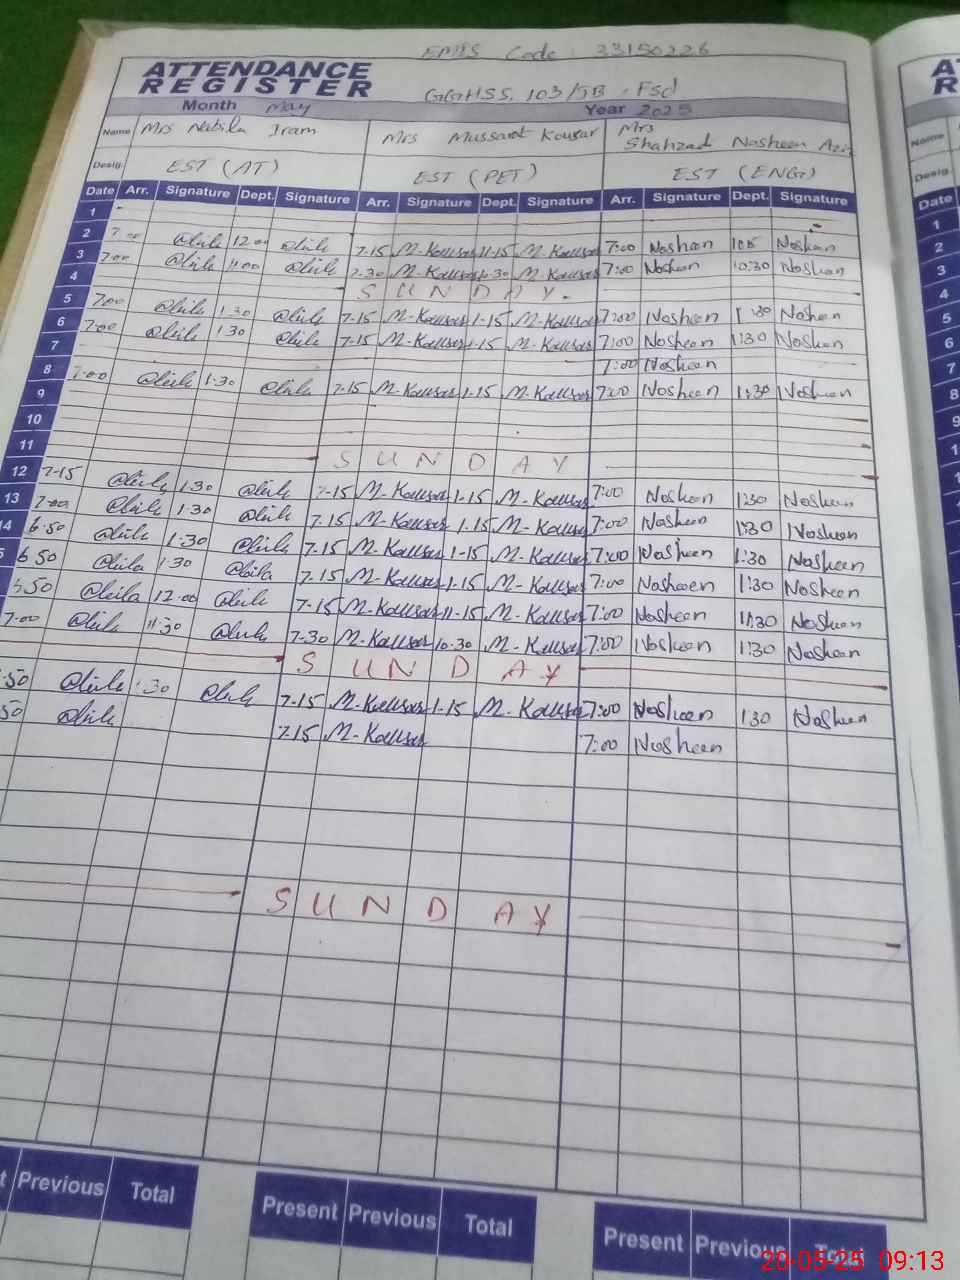 EMIS Code : 33150226
ATTENDANCE
REGISTER
GGHSS, 103/JB, Fsd
Month May Year 2025
Name Mrs Nabila Iram Mrs Mussarat Kousar Mrs Shahzad Nosheen Aziz
Desig. EST (AT) EST (PET) EST (ENG)
Date Arr. Signature Dept. Signature Arr. Signature Dept. Signature Arr. Signature Dept. Signature
1
2 7:00 12:00 7-15 M-Kousar 11-15 M-Kousar 7:00 Nosheen Nosheen
3 7:00 11:00 7-30 M-Kousar M-Kousar 7:00 Nosheen 10:30 Nosheen
4 SUNDAY
5 7:00 1:30 7-15 M-Kousar 1-15 M-Kousar 7:00 Nosheen 1:30 Nosheen
6 7:00 1:30 7-15 M-Kousar 1-15 M-Kousar 7:00 Nosheen 1:30 Nosheen
7 7:00 Nosheen
8 7:00 1:30 7-15 M-Kousar 1-15 M-Kousar 7:00 Nosheen 1:30 Nosheen
9
10
11 SUNDAY
12 7-15 1:30 7-15 M-Kousar 1-15 M-Kousar 7:00 Nosheen 1:30 Nosheen
13 7:00 1:30 7-15 M-Kousar 1-15 M-Kousar 7:00 Nosheen 1:30 Nosheen
14 6:50 1:30 7-15 M-Kousar 1-15 M-Kousar 7:00 Nosheen 1:30 Nosheen
6:50 1:30 7-15 M-Kousar 1-15 M-Kousar 7:00 Nosheen 1:30 Nosheen
12:00 7-15 M-Kousar 11-15 M-Kousar 7:00 Nosheen 11:30 Nosheen
7:00 11:30 7-30 M-Kousar 10-30 M-Kousar 7:00 Nosheen 1:30 Nosheen
SUNDAY
:50 1:30 7-15 M-Kousar 1-15 M-Kousar 7:00 Nosheen 1:30 Nosheen
50 7-15 M-Kousar 7:00 Nosheen
SUNDAY
Previous Total Present Previous Total Present Previous Total
20-05-25 09:13